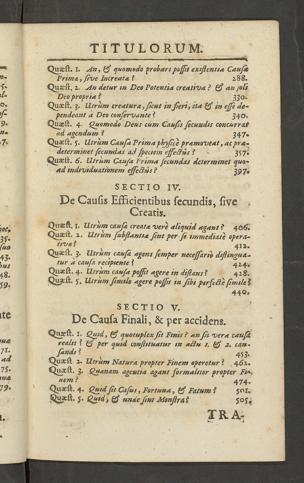 TITULORUM.
Quæst. 1. An, & quomodo probari possit existentia Causæ
Primæ, sive Increatæ? 288.
Quæst. 2. An detur in Deo Potentia creativa? & an soli
Deo propria? 330.
Quæst. 3. Utrùm creatura, sicut in fieri, ita & in esse de-
pendeant à Deo conservante? 340.
Quæst. 4. Quomodo Deus cum Causis secundis concurrat
ad agendum? 347.
Quæst. 5. Utrùm Causa Prima physicè præmoveat, ac præ-
determinet secundas ad speciem effectûs? 357.
Quæst. 6. Utrùm Causa Prima secundas determinet quo-
ad individuationem effectûs? 397.
SECTIO IV.
De Causis Efficientibus secundis, sive
Creatis.
Quæst. 1. Utrùm causæ creatæ verè aliquid agant? 406.
Quæst. 2. Utrùm substantiæ sint per se immediatè opera-
tivæ? 412.
Quæst. 3. Utrùm causa agens semper necessariò distingua-
tur à causa recipiente? 424.
Quæst. 4. Utrùm causa possit agere in distans? 428.
Quæst. 5. Utrùm simile agere possit in sibi perfectè simile?
440.
SECTIO V.
De Causa Finali, & per accidens.
Quæst. 1. Quid, & quotuplex sit Finis? an sit vera causa
realis? & per quid constituatur in actu 1. & 2. cau-
sandi? 453.
Quæst. 2. Utrùm Natura propter Finem operetur? 462.
Quæst. 3. Quænam agentia agant formaliter propter Fi-
nem? 474.
Quæst. 4. Quid sit Casus, Fortuna, & Fatum? 501.
Quæst. 5. Quid, & unde sint Monstra? 505.
TRA-